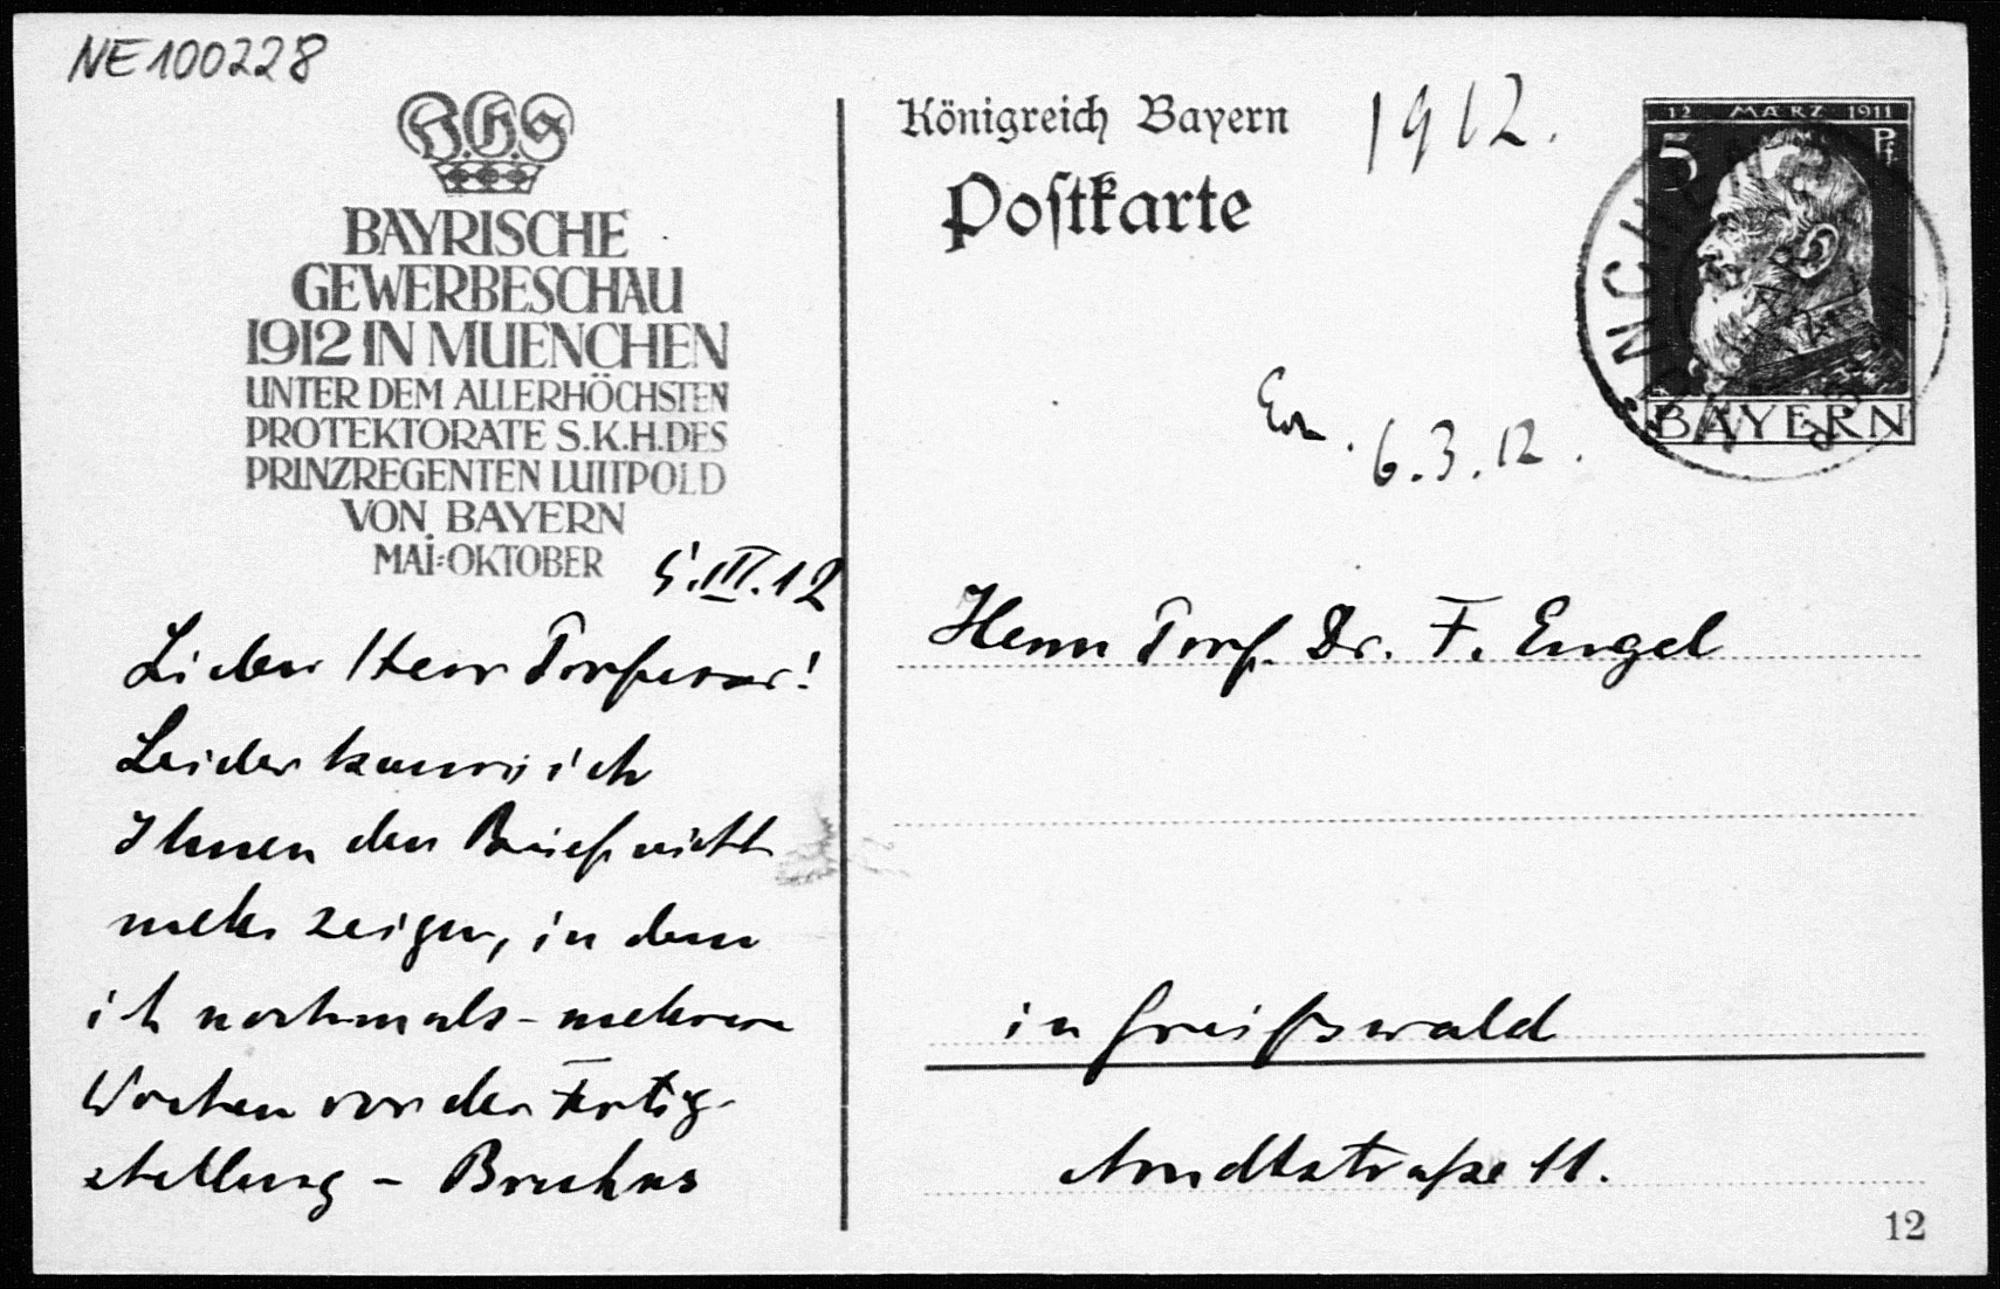 NE100228
BAYRISCHE
GEWERBESCHAU
1912 IN MUENCHEN
UNTER DEM ALLERHÖCHSTEN
PROTEKTORATE S.K.H. DES
PRINZREGENTEN LUITPOLD
VON BAYERN
MAI-OKTOBER
5.III.12
Lieber Herr Professor!
Leider kann ich
Ihnen den Brief nicht
mehr zeigen, in dem
ich nochmals - mehrere
Wochen vor der Fertig-
stellung - Bruhns
Königreich Bayern
Postkarte
1912.
12 MÄRZ 1911
5 Pf
BAYERN
6.3.12.
Herrn Prof. Dr. F. Engel
in Greifswald
Arndtstraße 11.
12